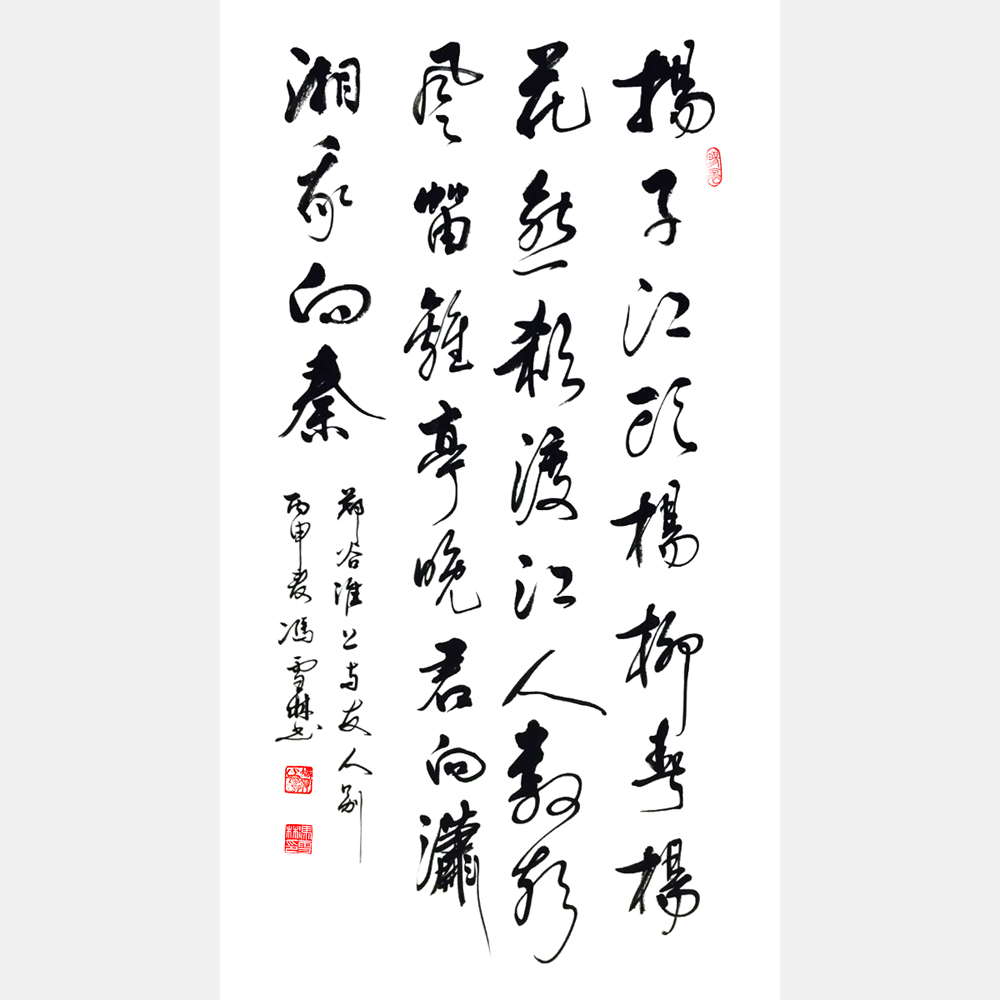 揚子江頭楊柳春楊
花愁殺渡江人數聲
風笛離亭晚君向瀟
湘我向秦
鄭谷淮上与友人别
丙申夏馮雪林书